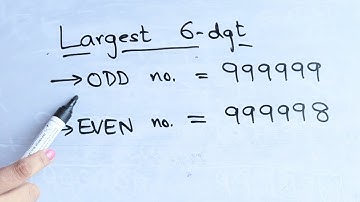 Largest 6-dgt
→ ODD no. = 999999
→ EVEN no. = 999998